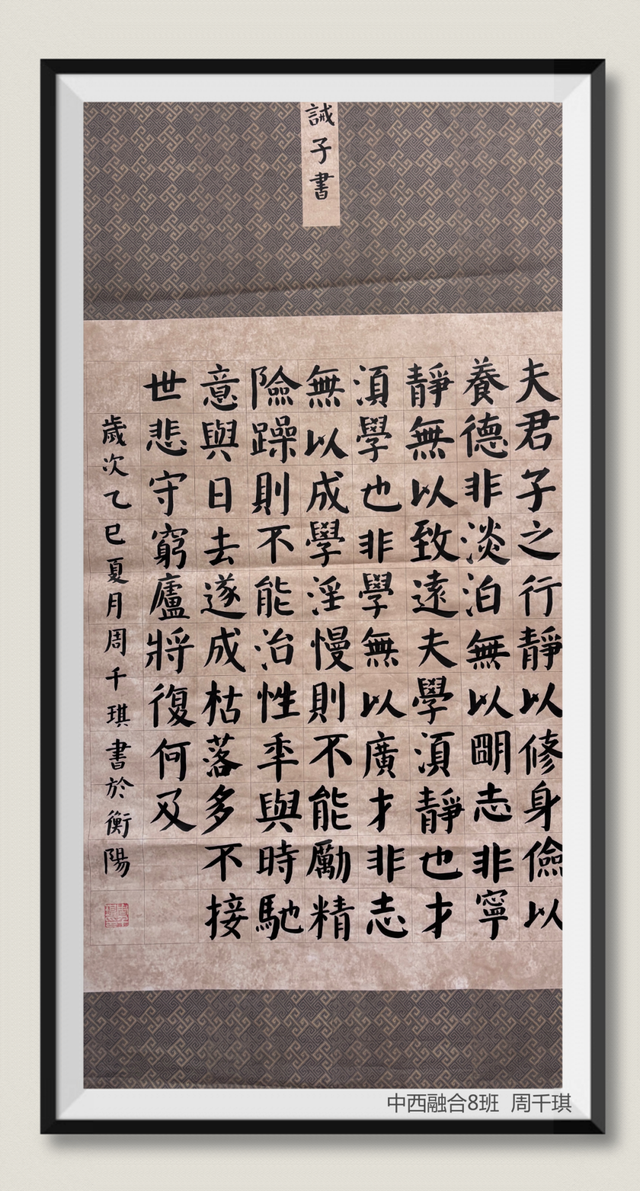 誡子書
夫君子之行靜以修身儉以
養德非淡泊無以明志非寧
靜無以致遠夫學湏靜也才
湏學也非學無以廣才非志
無以成學淫慢則不能勵精
險躁則不能治性年與時馳
意與日去遂成枯落多不接
世悲守窮廬將復何及
歲次乙巳夏月周千琪書於衡陽
中西融合8班 周千琪